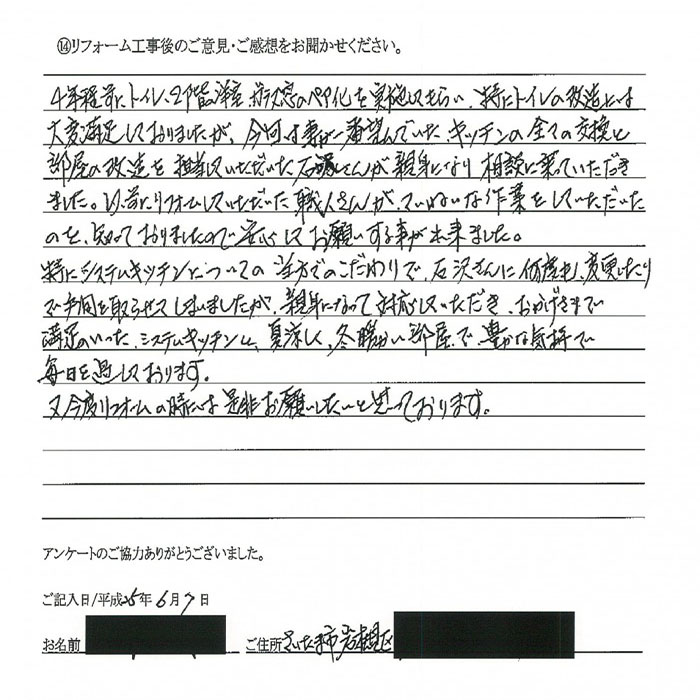 ⑭リフォーム工事後のご意見・ご感想をお聞かせください。
4年程前に、トイレ、2階洋室、ガラス窓のペア化を実施してもらい、特にトイレの改造には
大変満足しておりましたが、今回は妻が希望んでいた、キッチンの全ての交換と
部屋の改造を担当していただいた石沢さんが親身になり相談に乗っていただき
ました。以前にリフォームしていただいた職人さんが、ていねいな作業をしていただいた
のを、知っておりましたので安心してお願いする事が出来ました。
特にシステムキッチンについての当方でのこだわりで、石沢さんに何度も、変更したり
で手間を取らせてしまいましたが、親身になって対応していただき、おかげさまで
満足のいった、システムキッチンと、夏涼しく、冬暖かい部屋で豊かな気持で
毎日を過しております。
又今度リフォームの時には是非お願いしたいと思っております。
アンケートのご協力ありがとうございました。
ご記入日/平成25年6月7日
お名前 ご住所 さいたま市岩槻区